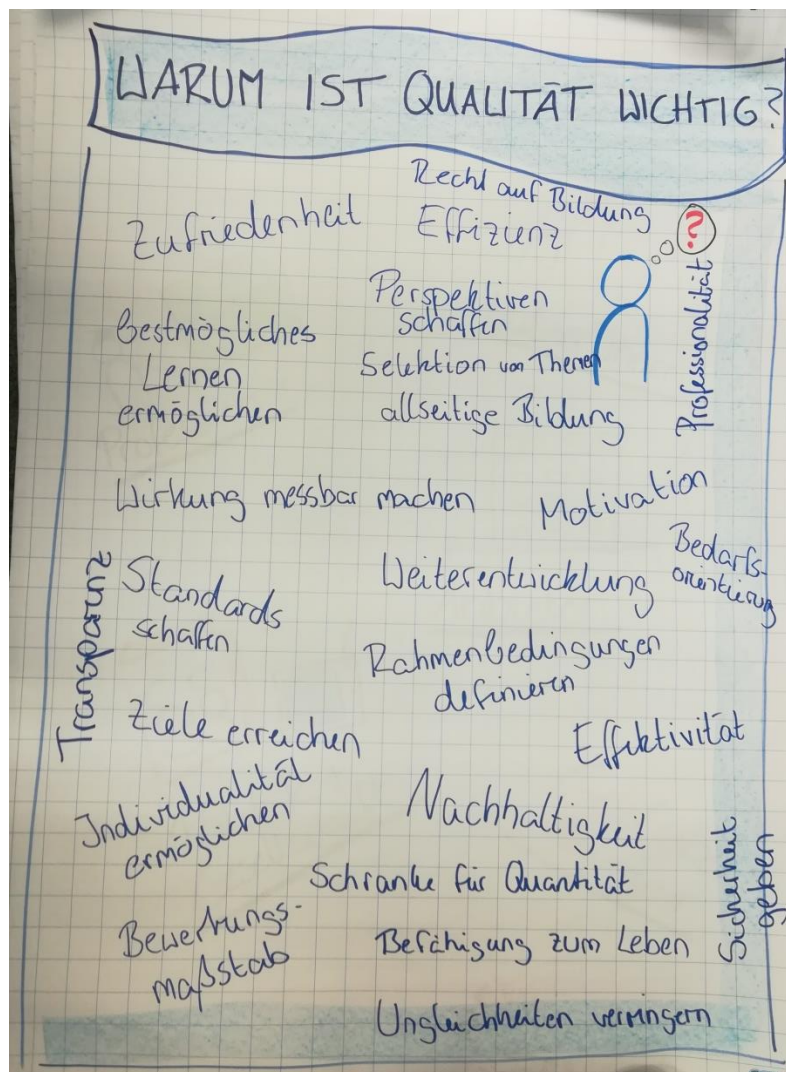 WARUM IST QUALITÄT WICHTIG?
Recht auf Bildung
Zufriedenheit
Effizienz
?
Professionalität
Perspektiven
schaffen
Bestmögliches
Lernen
ermöglichen
Selektion von Themen
allseitige Bildung
Wirkung messbar machen
Motivation
Bedarfs-
orientierung
Transparenz
Standards
schaffen
Weiterentwicklung
Rahmenbedingungen
definieren
Ziele erreichen
Effektivität
Individualität
ermöglichen
Nachhaltigkeit
Sicherheit
geben
Schranke für Quantität
Bewertungs-
maßstab
Befähigung zum Leben
Ungleichheiten verringern